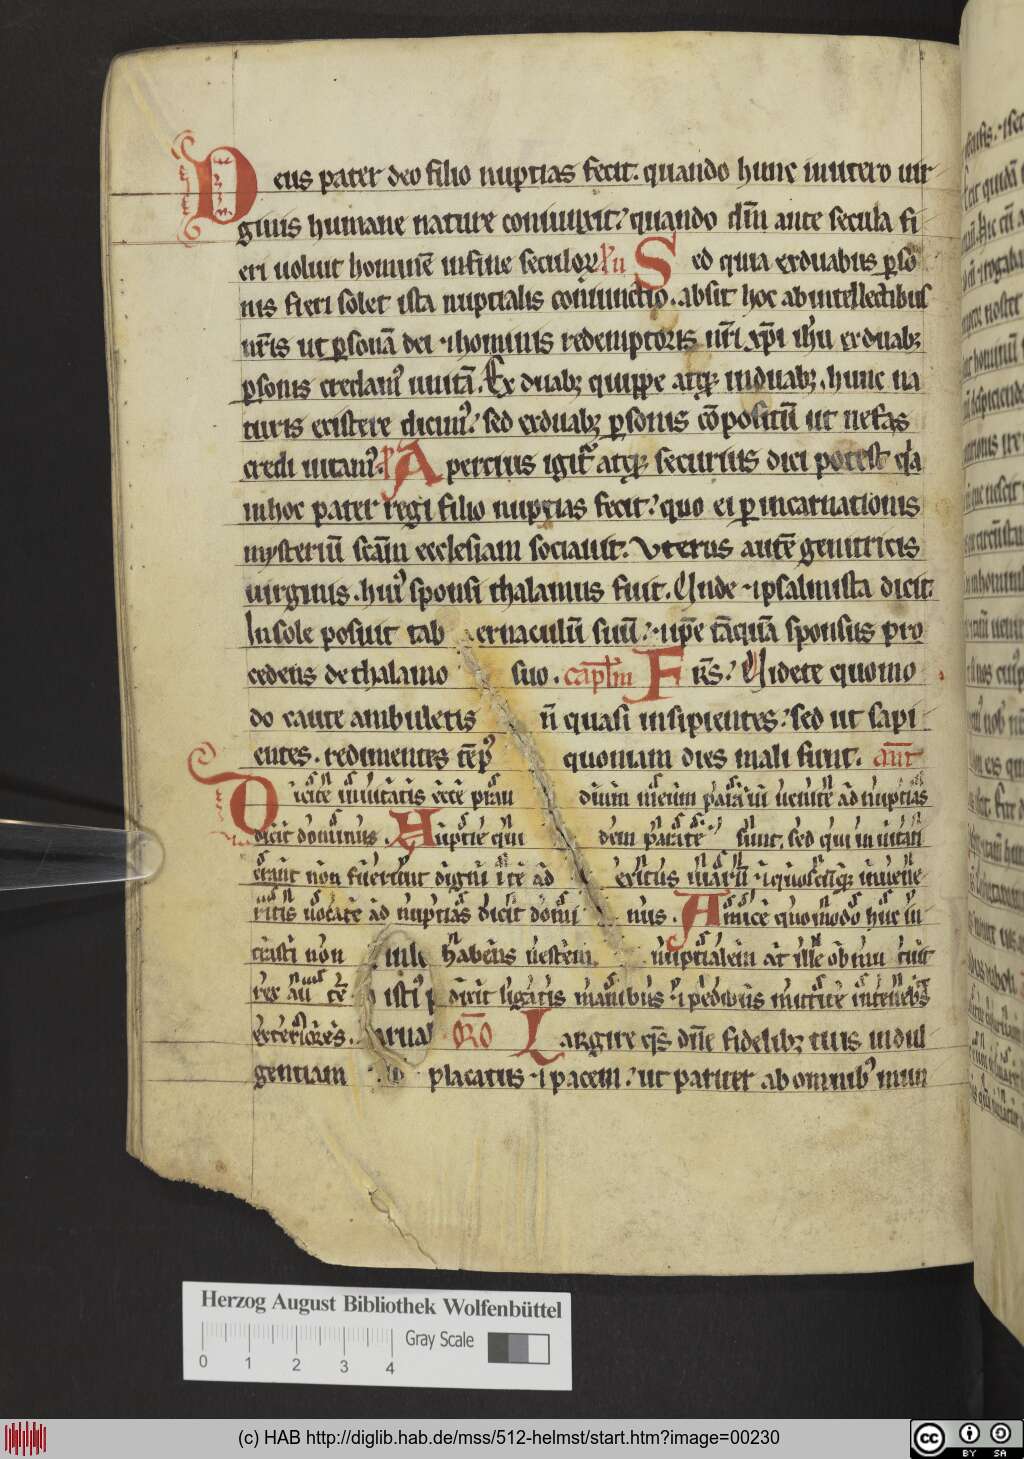 Deus pater deo filio nuptias fecit. quando hunc inutero uir
ginis humane nature coniunxit. quando dm̄ ante secula fi
eri uoluit hominē infine seculoꝝ Sed quia exduabus ꝑso
nis fieri solet ista nuptialis coniunctio. absit hoc abintellectibus
nr̄is ut ꝑsonā dei ⁊hominis redemptoris nr̄i xp̄i ih̄u exduabꝫ
ꝑsonis credamꝰ unitā. Ex duabꝫ quippe atqꝫ induabꝫ hunc na
turis existere dicimꝰ. sed exduabꝫ ꝑsonis cōpositū ut nefas
credi uitamꝰ. Apercius igit᷑ atqꝫ securius dici potest qia
inhoc pater regi filio nuptias fecit. quo ei ꝑ incarnationis
mysteriū scām ecclesiam sociauit. Vterus autē genitricis
uirginis. huiꝰ sponsi thalamus fuit. Vnde ⁊psalmista dicit.
Insole posuit tabernaculū suū. ⁊ip̄e tāquā sponsus pro
cedens de thalamo suo. cap̄lm Fr̄s. Videte quomo
do caute ambuletis n̄ quasi insipientes. sed ut sapi
entes. redimentes tēpꝰ quoniam dies mali sunt. ant̄
Dicite inuitatis ecce prandium meum paraui uenite ad nuptias
dicit dominus. Nuptie quidem parate sunt. sed qui inuitati
erant non fuerunt digni ite ad exitus uiarū ⁊quoscūqꝫ inuene
ritis uocate ad nuptias dicit dominus. Amice quomodo huc in
trasti non habens uestem nuptialem at ille obmutuit
rex aut̄ dixit ligatis manibus ⁊ pedibus mittite intenebras
exteriores. Or̄o Largire qs̄ dn̄e fidelibꝫ tuis indul
gentiam placatus ⁊ pacem. ut pariter ab omnibꝰ mun
Herzog August Bibliothek Wolfenbüttel
Gray Scale
0 1 2 3 4
(c) HAB http://diglib.hab.de/mss/512-helmst/start.htm?image=00230
cc BY SA